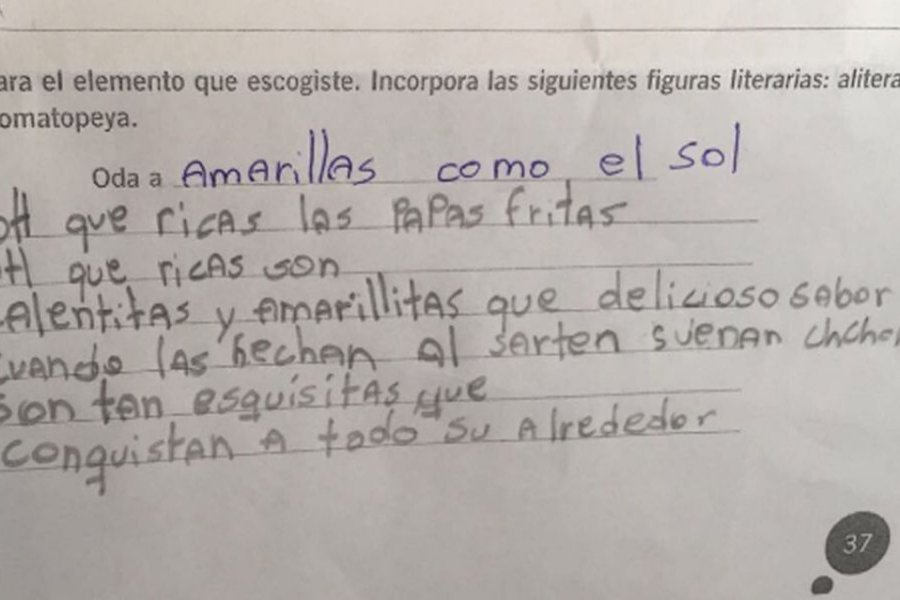 ara el elemento que escogiste. Incorpora las siguientes figuras literarias: alitera
omatopeya.
Oda a Amarillas como el sol
oH que ricas las papas fritas
H que ricas son
alentitas y amarillitas que delicioso sabor
cuando las hechan al sarten suenan chchch
son tan esquisitas que
conquistan a todo su alrededor
37